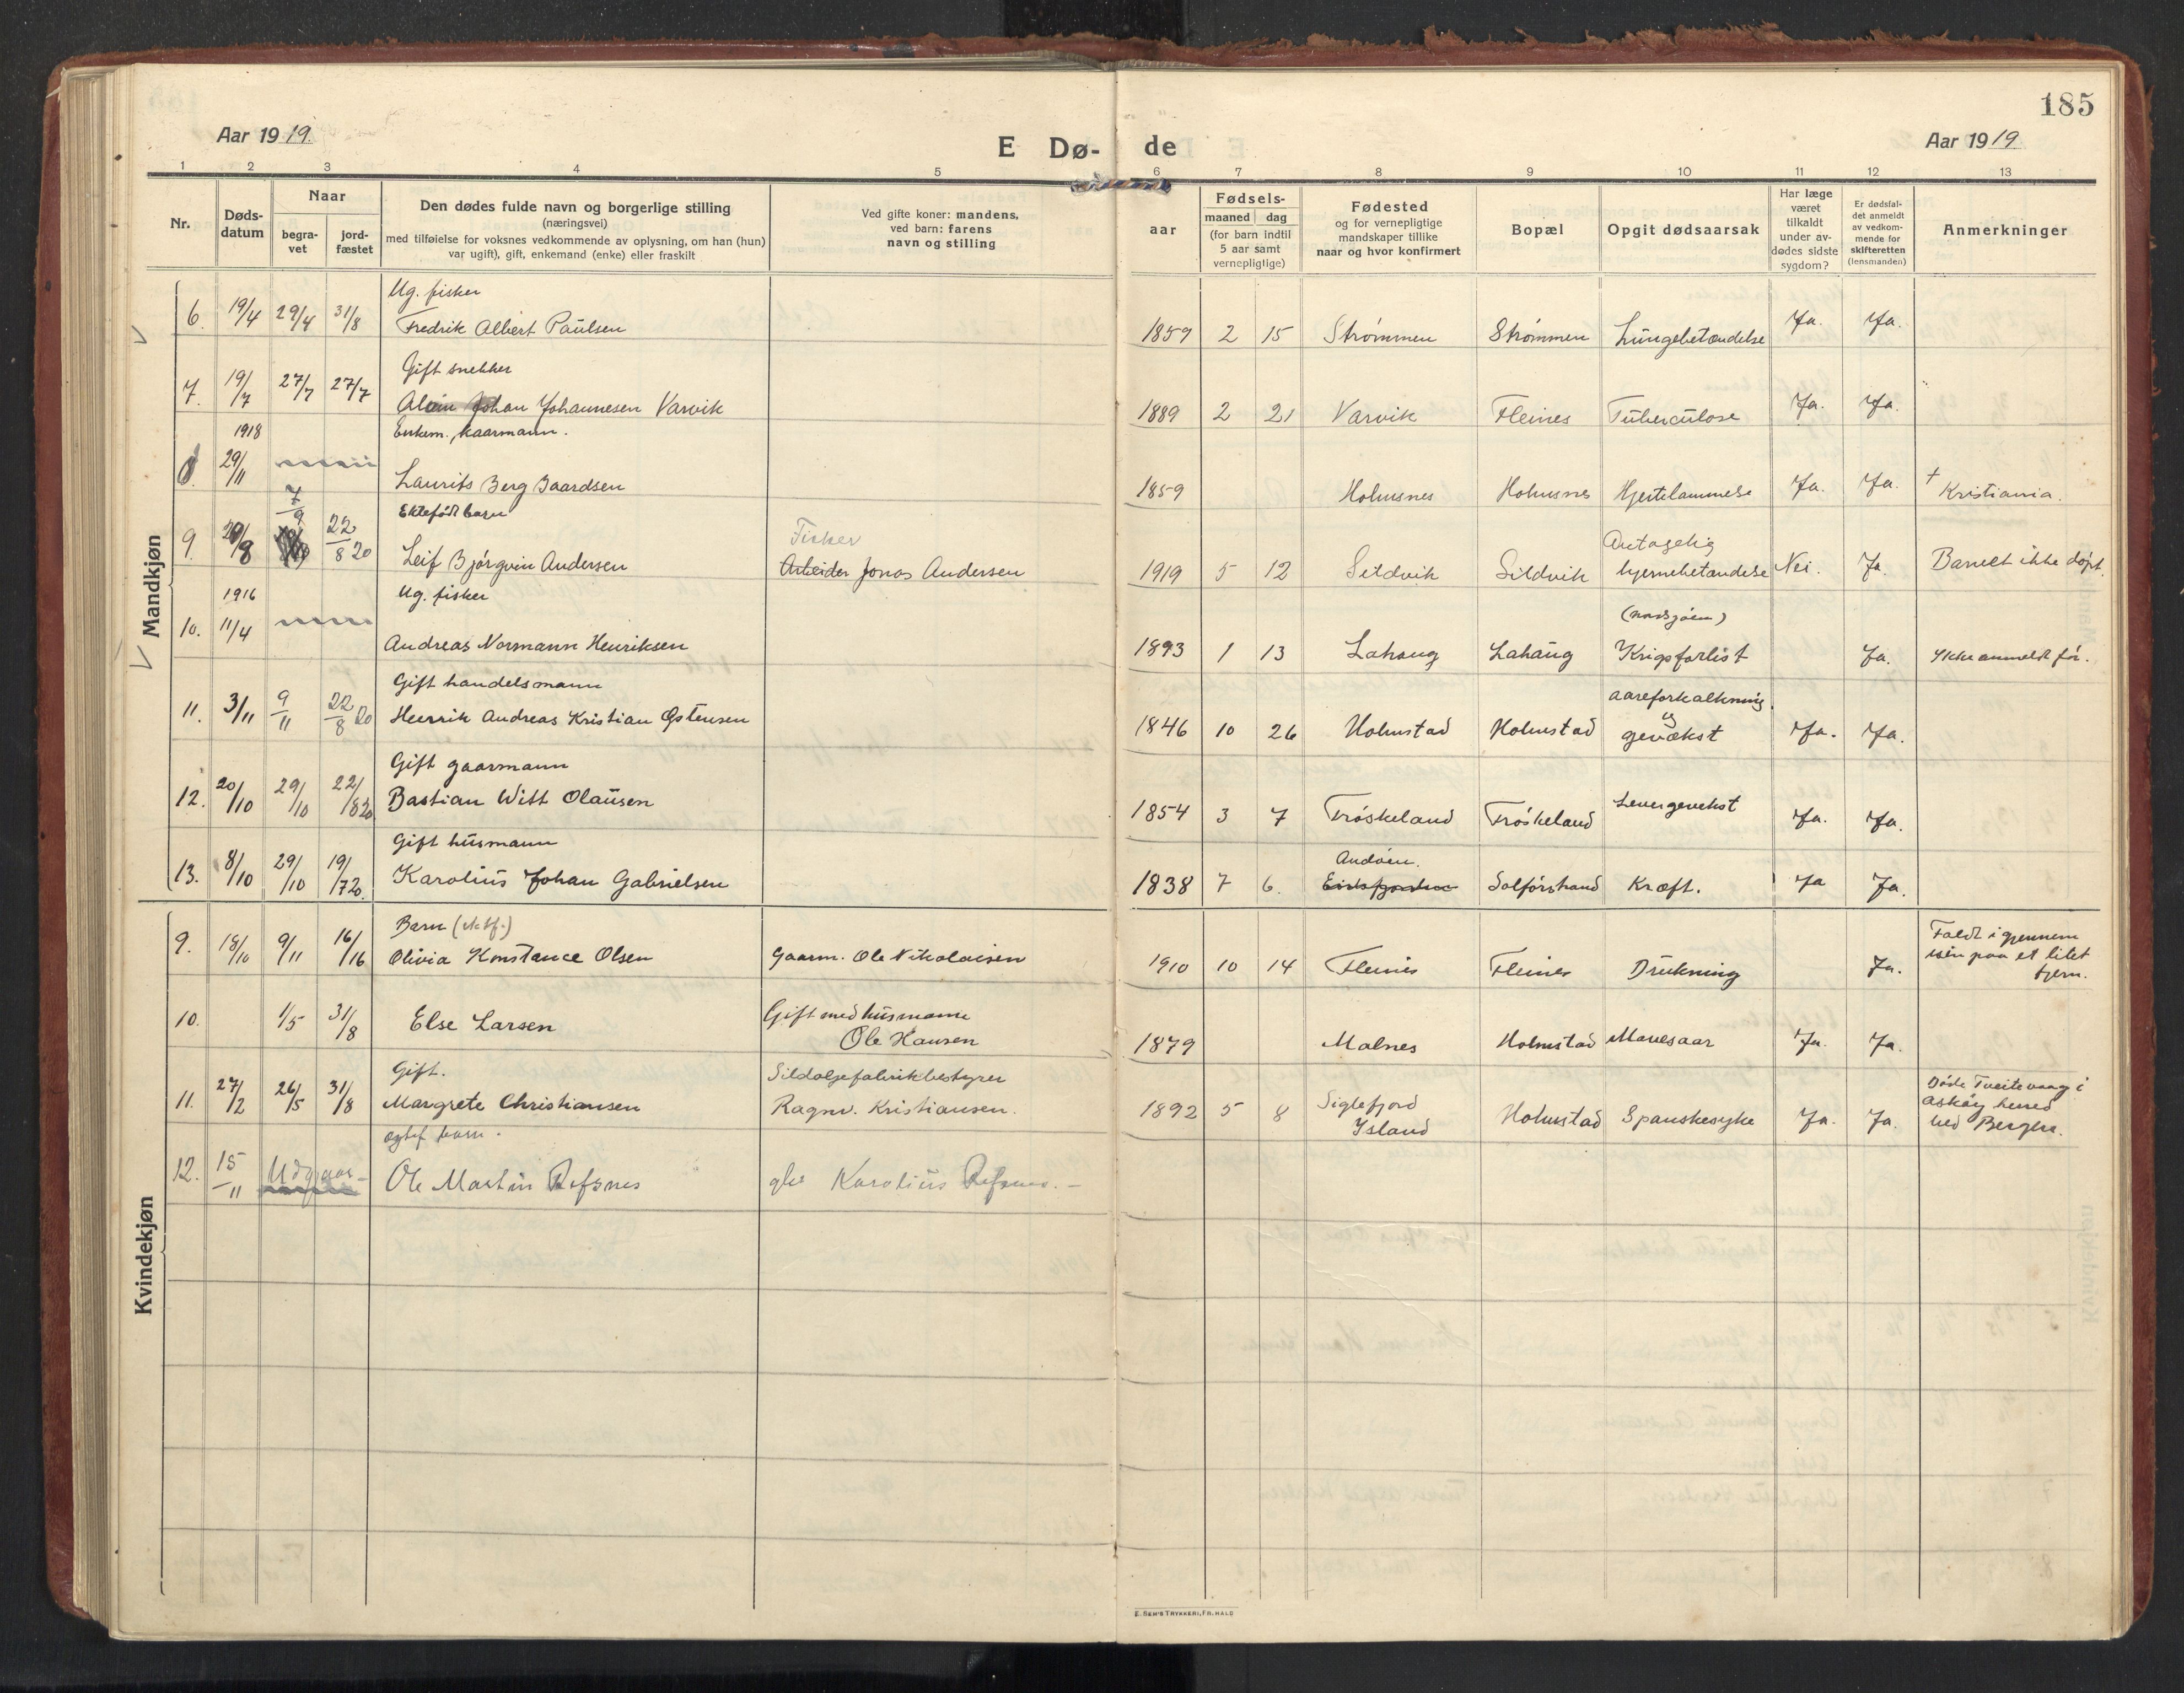 185
Aar 1919.
E Dø-de
Aar 1919
1 2 3 4 5 6 7 8 9 10 11 12 13
Nr.
Døds-
datum
Naar
begra-
vet
jord-
fæstet
Den dødes fulde navn og borgerlige stilling
(næringsvei)
med tilføielse for voksnes vedkommende av oplysning, om han (hun)
var ugift), gift, enkemand (enke) eller fraskilt
Ved gifte koner: mandens,
ved barn: farens
navn og stilling
aar
Fødsels-
maaned dag
(for barn indtil
5 aar samt
vernepligtige)
Fødested
og for vernepligtige
mandskaper tillike
naar og hvor konfirmert
Bopæl
Opgit dødsaarsak
Har læge
været
tilkaldt
under av-
dødes sidste
sygdom?
Er dødsfal-
det anmeldt
av vedkom-
mende for
skifteretten
(lensmanden)
Anmerkninger
Mandkjøn
Ug. fisker
6. 19/4 29/4 31/8 Fredrik Albert Paulsen 1859 2 15 Strømmen Strømmen Lungebetændelse Ja. Ja.
Gift snekker
7. 19/7 27/7 27/7 Alvin Johan Johannesen Varvik 1889 2 21 Varvik Fleines Tuberculose Ja. Ja.
1918 Enkem., kaarmann.
8. 29/11 Laurits Berg Baardsen 1859 Holmsnes Holmsnes Hjertelammelse Ja. Ja. † Kristiania.
Ektefødt barn
9. 20/8 7/9 22/8 20 Leif Bjørgvin Andersen
Fisker
Arbeider Jonas Andersen 1919 5 12 Sildvik Sildvik
Antagelig
hjernebetændelse Nei. Ja. Barnet ikke døpt.
1916 Ug. fisker
10. 11/4 Andreas Normann Henriksen 1893 1 13 Lahaug Lahaug
(nordsjøen)
Krigsforlist Ja. Ikke anmeldt før.
Gift handelsmann
11. 3/11 9/11 22/8 20 Henrik Andreas Kristian Østensen 1846 10 26 Holmstad Holmstad
aareforkalkning
og
gevækst Ja. Ja.
Gift gaarmann
12. 20/10 29/10 22/8 20 Bastian Witt Olausen 1854 3 7 Trøskeland Trøskeland Levergevekst Ja. Ja.
Gift husmann
13. 8/10 29/10 19/7 20. Karolius Johan Gabrielsen 1838 7 6.
Andøen.
Eidsfjorden Solførstrand Kræft. Ja Ja.
Kvindekjøn
Barn (ektf.)
9. 18/10 9/11 16/16 Olivia Konstance Olsen Gaarm. Ole Nikolaisen 1910 10 14 Fleines Fleines Drukning Ja.
Faldt i gjennem
isen paa et litet
tjern.
10. 1/5 31/8 Else Larsen
Gift med husmann
Ole Hansen 1879 Malnes Holmstad Mavesaar Ja. Ja.
Gift.
11. 27/2 26/5 31/8 Margrete Christiansen
Sildoljefabrikbestyrer
Ragnv. Kristiansen. 1892 5 8
Siglefjord
Island Holmstad Spanskesyke Ja. Ja.
Døde Tveitevaag i
Askøy herred
ved Bergen.
ægtef barn.
12. 15/11 Udgaar Ole Martin Refsnes gbr Karolius Refsnes.
E. SEM'S TRYKKERI, FR. HALD